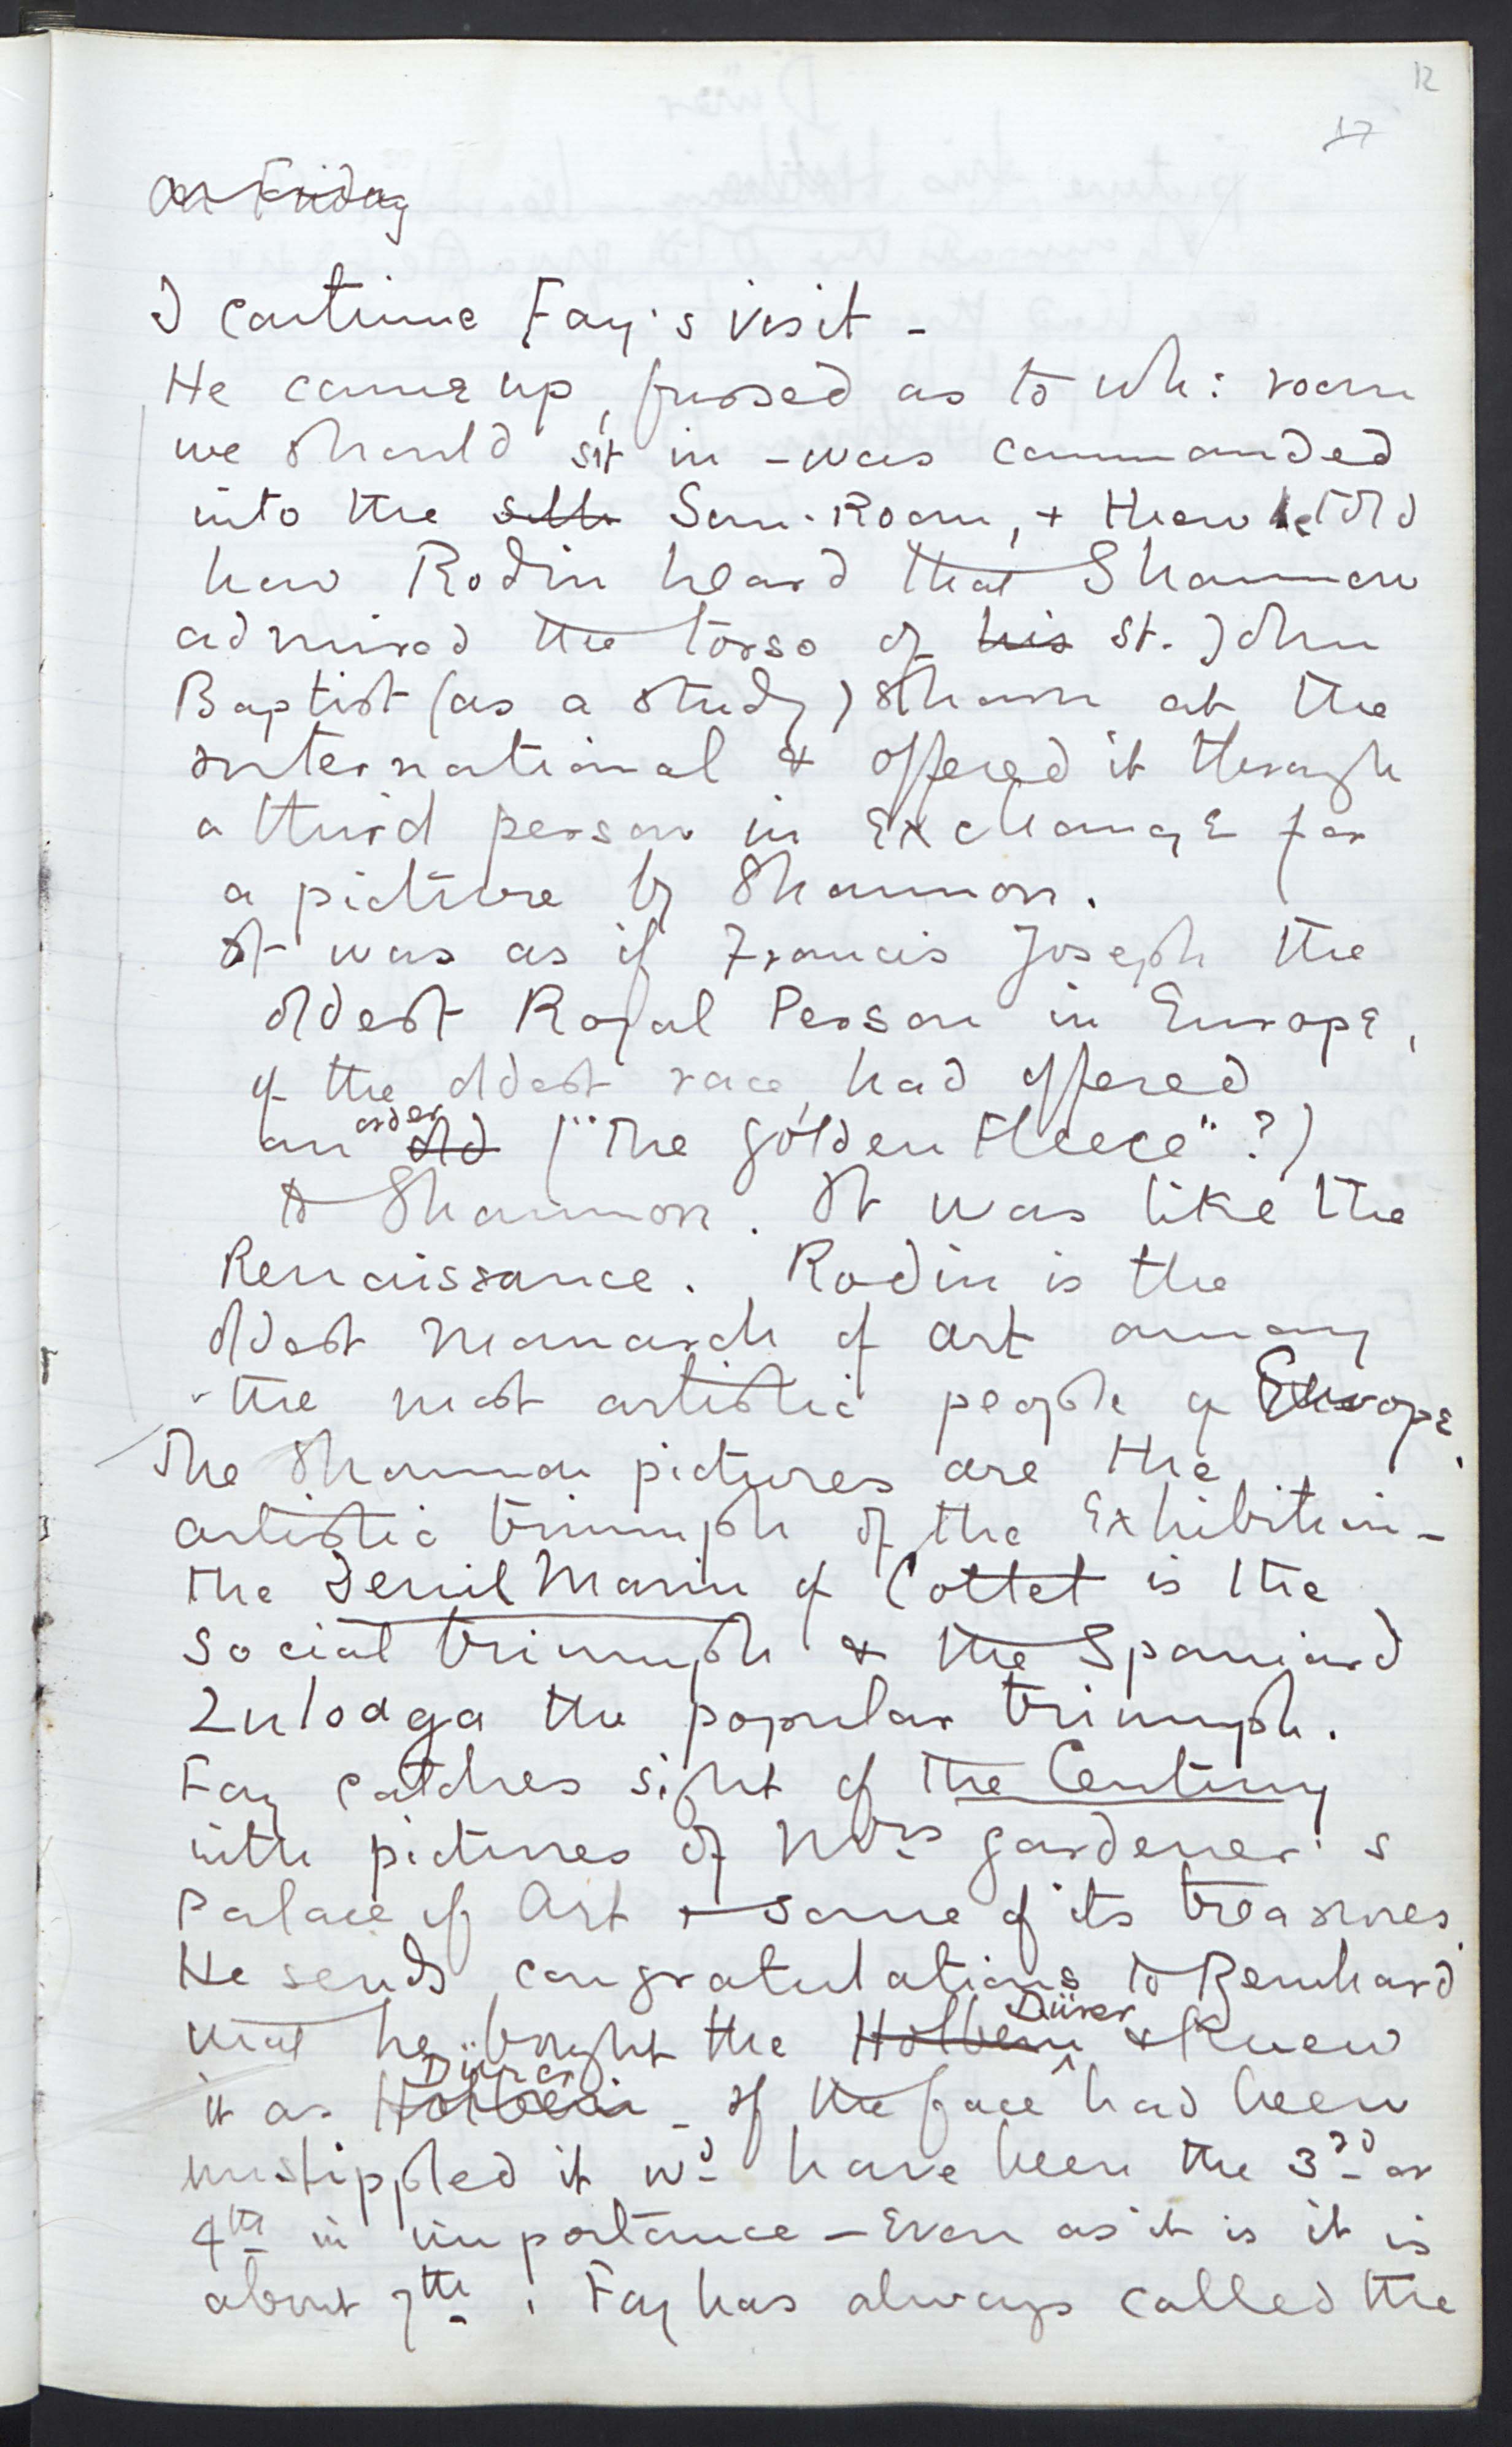 12
17
On Friday
I continue Fay's visit -
He came up, fussed as to wh: room
we should sit in - was commanded
into the Sun-Room, + then he told
how Rodin heard that Shannon
admired the torso of his St. John
Baptist (as a study) shown at the
International & offered it through
a third person in exchange for
a picture by Shannon.
It was as if Francis Joseph the
oldest Royal Person in Europe,
of the oldest race, had offered
an order old ("The Golden Fleece"?)
to Shannon. It was like the
Renaissance. Rodin is the
oldest monarch of art among
the most artistic people of Europe.
The Shannon pictures are the
artistic triumph of the Exhibition -
the Deuil Marin of Cottet is the
social triumph & the Spaniard
Zuloaga the popular triumph.
Fay catches sight of The Century
with pictures of Mrs Gardener's
Palace of Art + some of its treasures.
He sends congratulations to Bernhard
that he bought the Holbein Dürer & knew
it as Holbein Dürer - If the face had been
unstippled it wd have been the 3rd or
4th in importance - Even as it is it is
about 7th. Fay has always called the